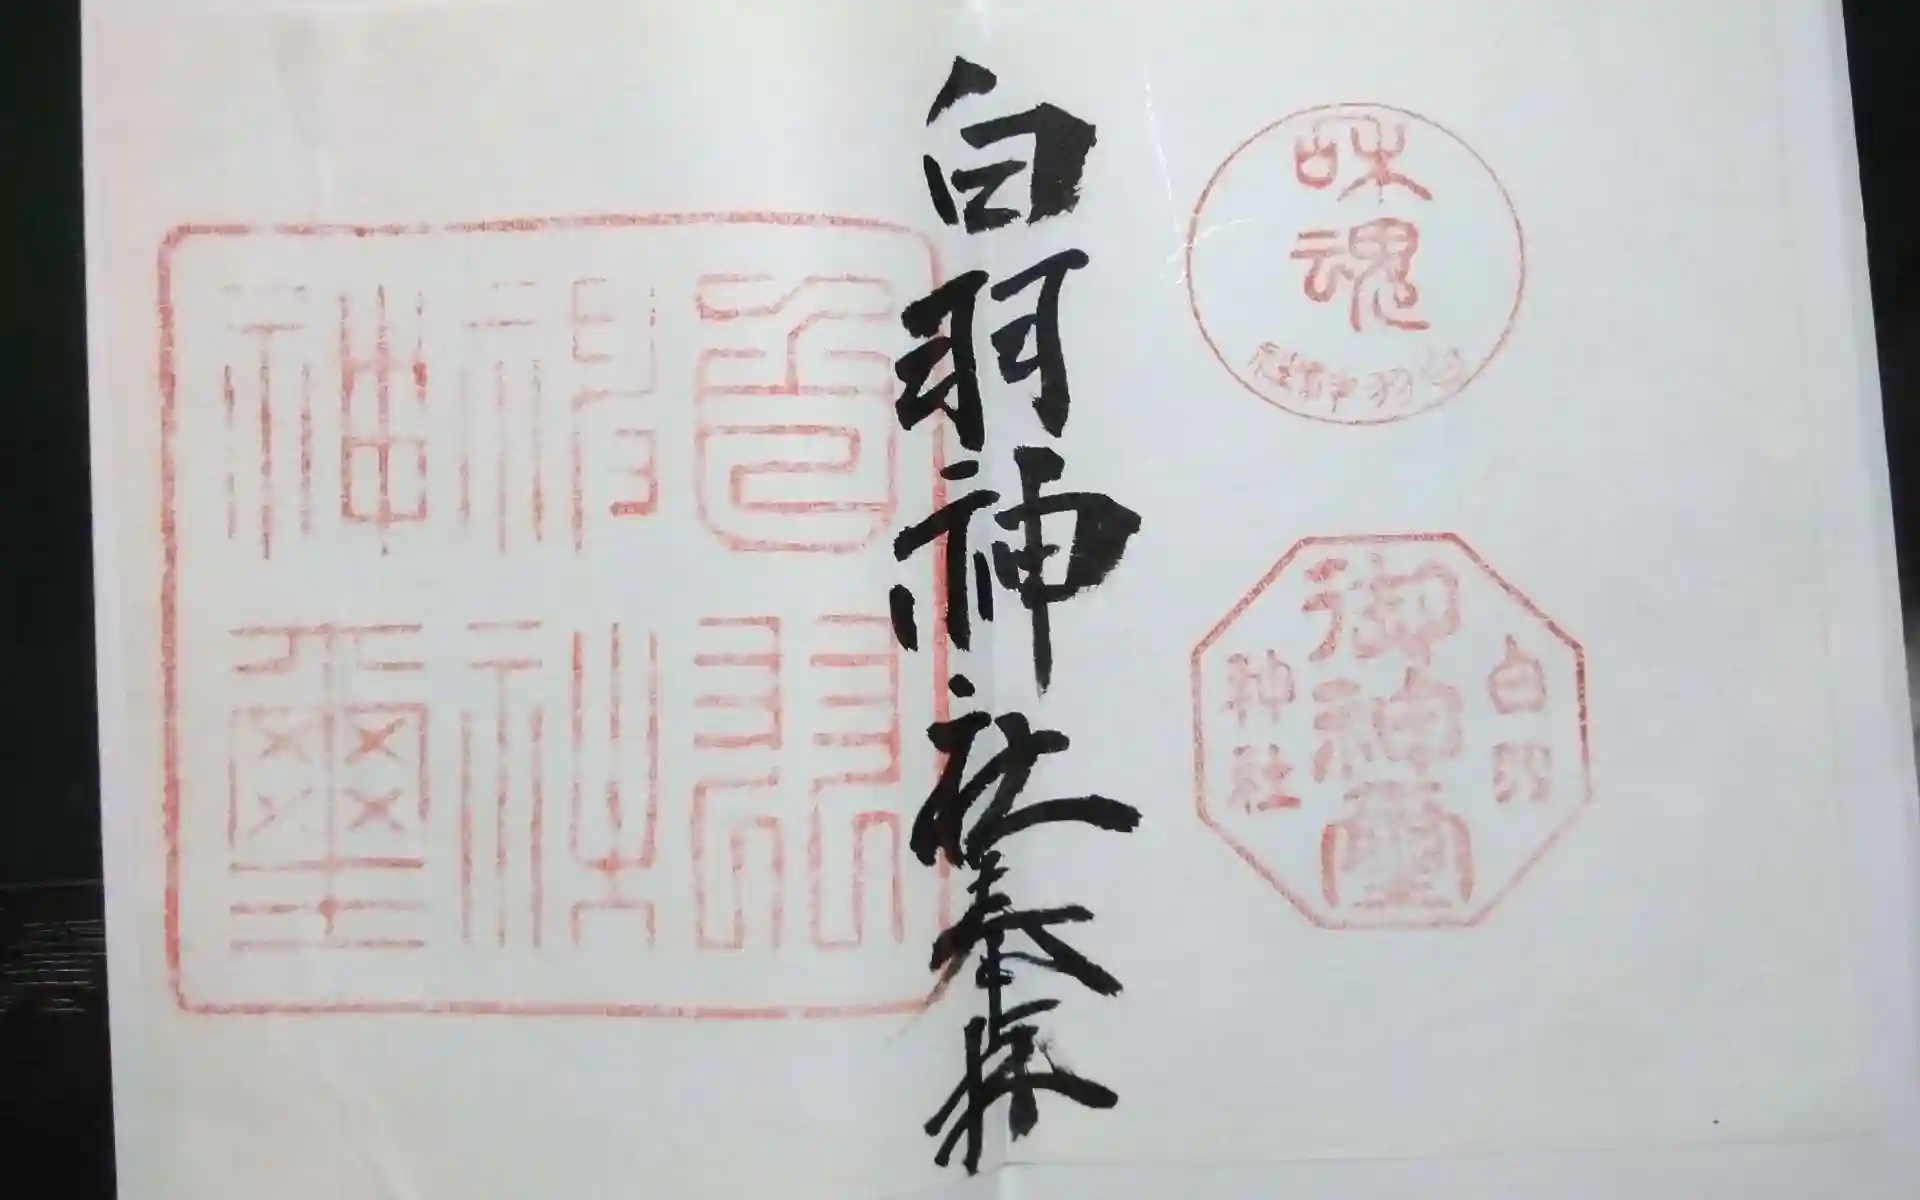 和魂
白羽神社
白羽
御神璽
神社
白羽神社奉拝
白羽
神社
神璽